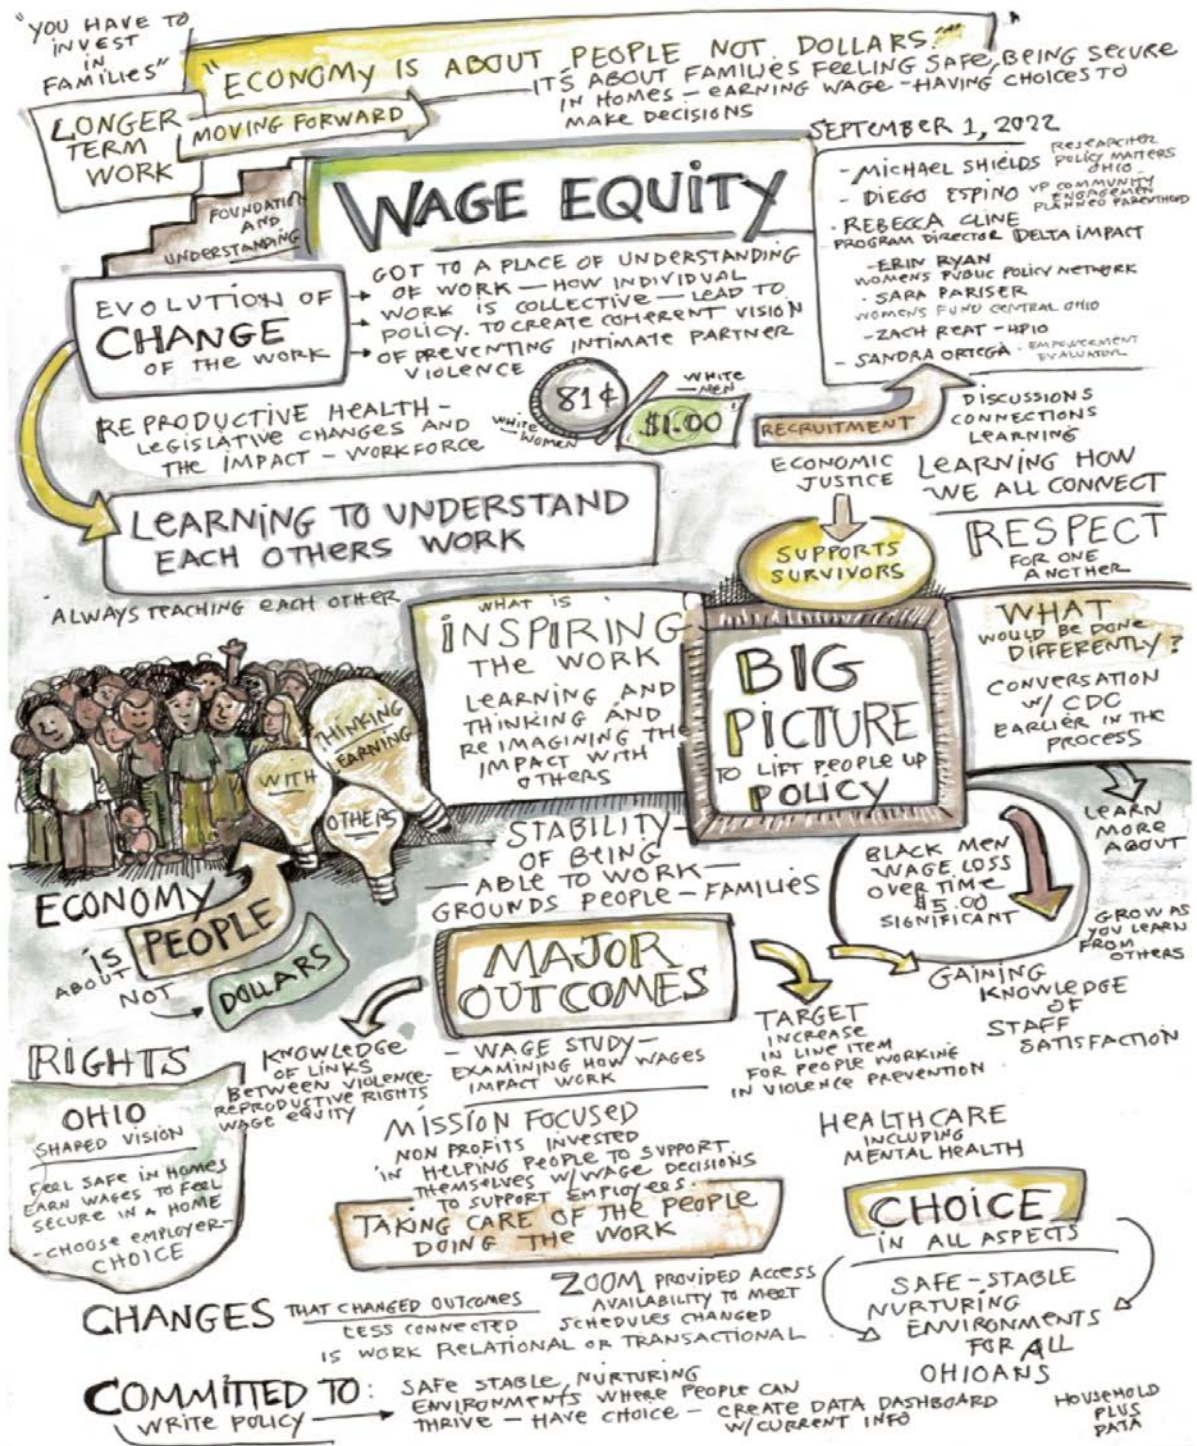 "YOU HAVE TO
INVEST
IN
FAMILIES"
"ECONOMY IS ABOUT PEOPLE NOT DOLLARS."
IT'S ABOUT FAMILIES FEELING SAFE, BEING SECURE
IN HOMES - EARNING WAGE - HAVING CHOICES TO
MAKE DECISIONS
LONGER
TERM
WORK
MOVING FORWARD
FOUNDATION
AND
UNDERSTANDING
WAGE EQUITY
SEPTEMBER 1, 2022
- MICHAEL SHIELDS RESEARCHER
POLICY MATTERS
OHIO
- DIEGO ESPINO VP COMMUNITY
ENGAGEMEN
PLANNED PARENTHOOD
- REBECCA CLINE
PROGRAM DIRECTOR DELTA IMPACT
- ERIN RYAN
WOMENS PUBLIC POLICY NETWORK
- SARA PARISER
WOMENS FUND CENTRAL OHIO
- ZACH REAT - HPIO
- SANDRA ORTEGA - EMPOWERMENT
EVALUATOR
EVOLUTION OF
CHANGE
OF THE WORK
GOT TO A PLACE OF UNDERSTANDING
OF WORK - HOW INDIVIDUAL
WORK IS COLLECTIVE - LEAD TO
POLICY. TO CREATE COHERENT VISION
OF PREVENTING INTIMATE PARTNER
VIOLENCE
REPRODUCTIVE HEALTH -
LEGISLATIVE CHANGES AND
THE IMPACT - WORKFORCE
WHITE
WOMEN
81¢
$1.00
WHITE
MEN
RECRUITMENT
DISCUSSIONS
CONNECTIONS
LEARNING
LEARNING HOW
WE ALL CONNECT
RESPECT
FOR ONE
ANOTHER
ECONOMIC
JUSTICE
SUPPORTS
SURVIVORS
LEARNING TO UNDERSTAND
EACH OTHERS WORK
ALWAYS TEACHING EACH OTHER
WHAT IS
INSPIRING
THE WORK
LEARNING AND
THINKING AND
RE IMAGINING THE
IMPACT WITH
OTHERS
BIG
PICTURE
TO LIFT PEOPLE UP
POLICY
WHAT
WOULD BE DONE
DIFFERENTLY?
CONVERSATION
W/ CDC
EARLIER IN THE
PROCESS
LEARN
MORE
ABOUT
THINKING
LEARNING
WITH
OTHERS
STABILITY -
OF BEING
- ABLE TO WORK -
GROUNDS PEOPLE - FAMILIES
BLACK MEN
WAGE LOSS
OVER TIME
$5.00
SIGNIFICANT
GROW AS
YOU LEARN
FROM
OTHERS
ECONOMY
IS
ABOUT
PEOPLE
NOT
DOLLARS
MAJOR
OUTCOMES
GAINING
KNOWLEDGE
OF
STAFF
SATISFACTION
TARGET
INCREASE
IN LINE ITEM
FOR PEOPLE WORKING
IN VIOLENCE PREVENTION
- WAGE STUDY -
EXAMINING HOW WAGES
IMPACT WORK
KNOWLEDGE
OF LINKS
BETWEEN VIOLENCE-
REPRODUCTIVE RIGHTS
WAGE EQUITY
RIGHTS
OHIO
SHARED VISION
FEEL SAFE IN HOMES
EARN WAGES TO FEEL
SECURE IN A HOME
- CHOOSE EMPLOYER-
CHOICE
MISSION FOCUSED
NON PROFITS INVESTED
IN HELPING PEOPLE TO SUPPORT
THEMSELVES W/WAGE DECISIONS
TO SUPPORT EMPLOYEES.
TAKING CARE OF THE PEOPLE
DOING THE WORK
HEALTHCARE
INCLUPING
MENTAL HEALTH
CHOICE
IN ALL ASPECTS
SAFE - STABLE
NURTURING
ENVIRONMENTS
FOR ALL
OHIOANS
CHANGES THAT CHANGED OUTCOMES
LESS CONNECTED
IS WORK RELATIONAL OR TRANSACTIONAL
ZOOM PROVIDED ACCESS
AVAILABILITY TO MEET
SCHEDULES CHANGED
COMMITTED TO:
WRITE POLICY
SAFE STABLE, NURTURING
ENVIRONMENTS WHERE PEOPLE CAN
THRIVE - HAVE CHOICE - CREATE DATA DASHBOARD
W/CURRENT INFO
HOUSEHOLD
PLUS
DATA